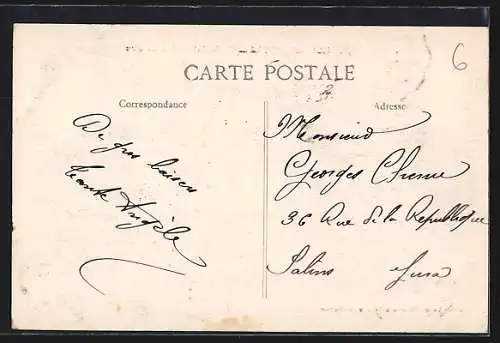 6
CARTE POSTALE
Correspondance
Adresse
De gros baisers
tante Angèle
Monsieur
Georges
36 Rue de la République
Salins Jura